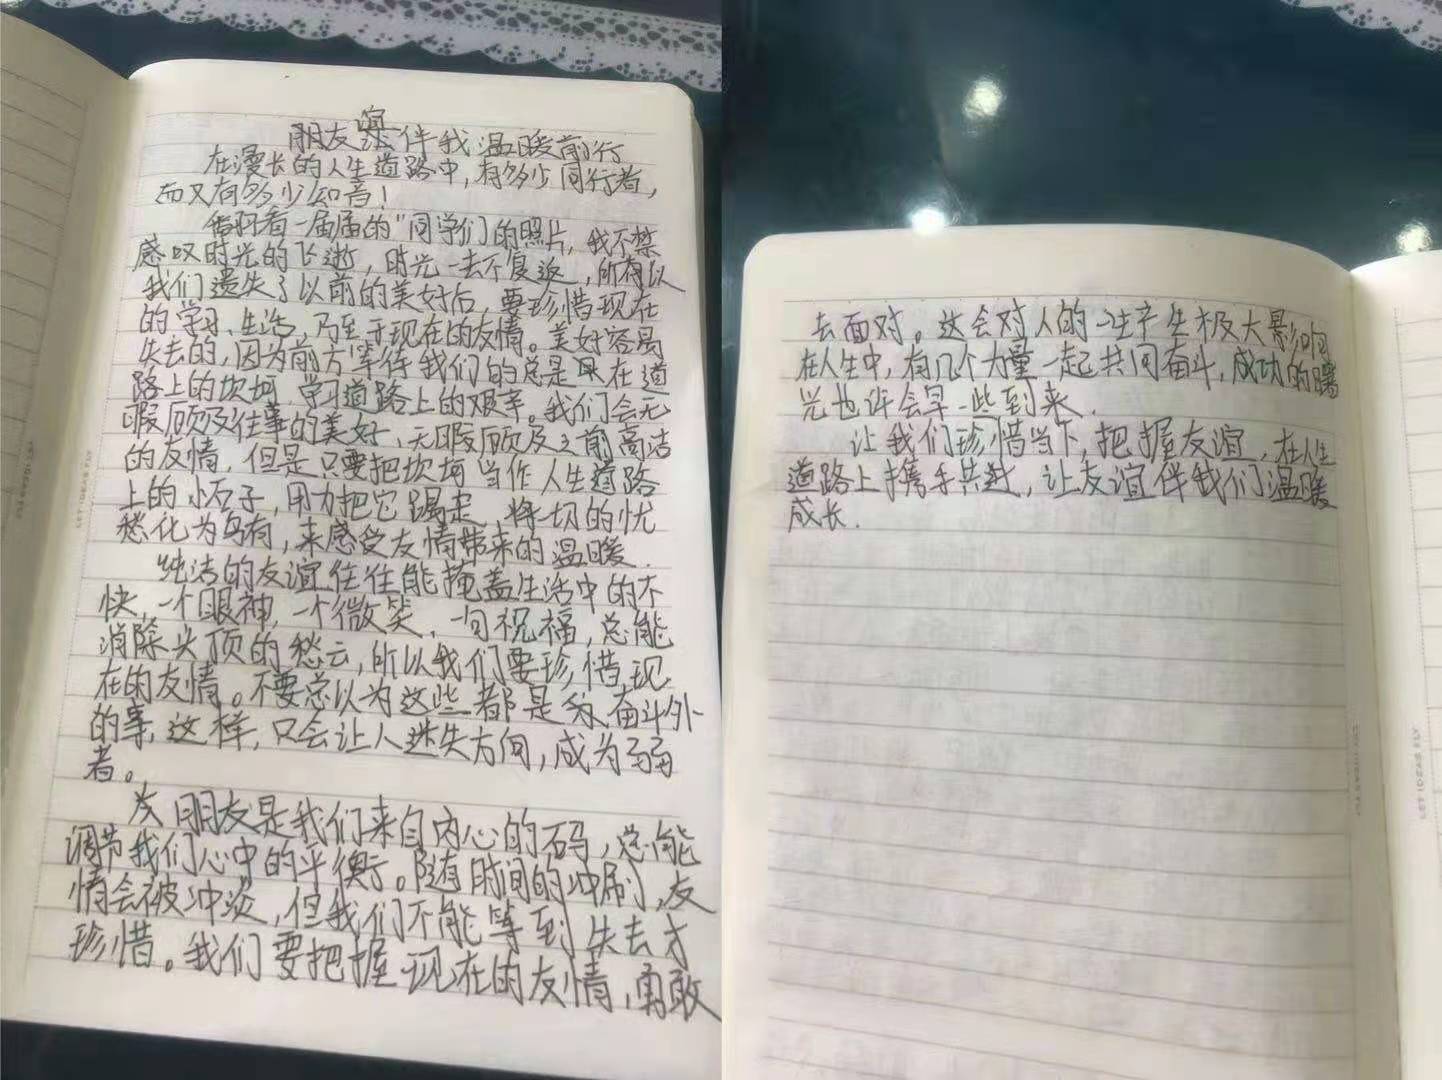 友谊伴我温暖前行
在漫长的人生道路中，有多少同行者，
而又有多少知音！
看一届届的“同学们的照片，我不禁
感叹时光的飞逝，时光一去不复返，所有以
我们遗失了以前的美好后，要珍惜现在
的学习、生活，乃至于现在的友情。美好容易
失去的，因为前方等待我们的总是在道
路上的坎坷，学习道路上的艰辛。我们会无
暇顾及往事的美好，无暇顾及之前高洁
的友情，但是只要把坎坷当作人生道路
上的小石子，用力把它踢走，将一切的忧
愁化为乌有，来感受友情带来的温暖.
纯洁的友谊往往能掩盖生活中的不
快，一个眼神，一个微笑，一句祝福，总能
消除头顶的愁云，所以我们要珍惜现
在的友情。不要总以为这些都是奋斗外
的事，这样，只会让人迷失方向，成为弱
者。
朋友是我们来自内心的码，总能
调节我们心中的平衡。随有时间的冲刷，友
情会被冲淡，但我们不能等到失去才
珍惜。我们要把握现在的友情，勇敢
去面对。这会对人的一生产生极大影响
在人生中，有几个力量一起共同奋斗，成功的曙
光也许会早一些到来.
让我们珍惜当下，把握友谊，在人生
道路上携手共进，让友谊伴我们温暖
成长.
LET IDEAS FLY
LET IDEAS FLY
LET IDEAS FLY
LET IDEAS FLY